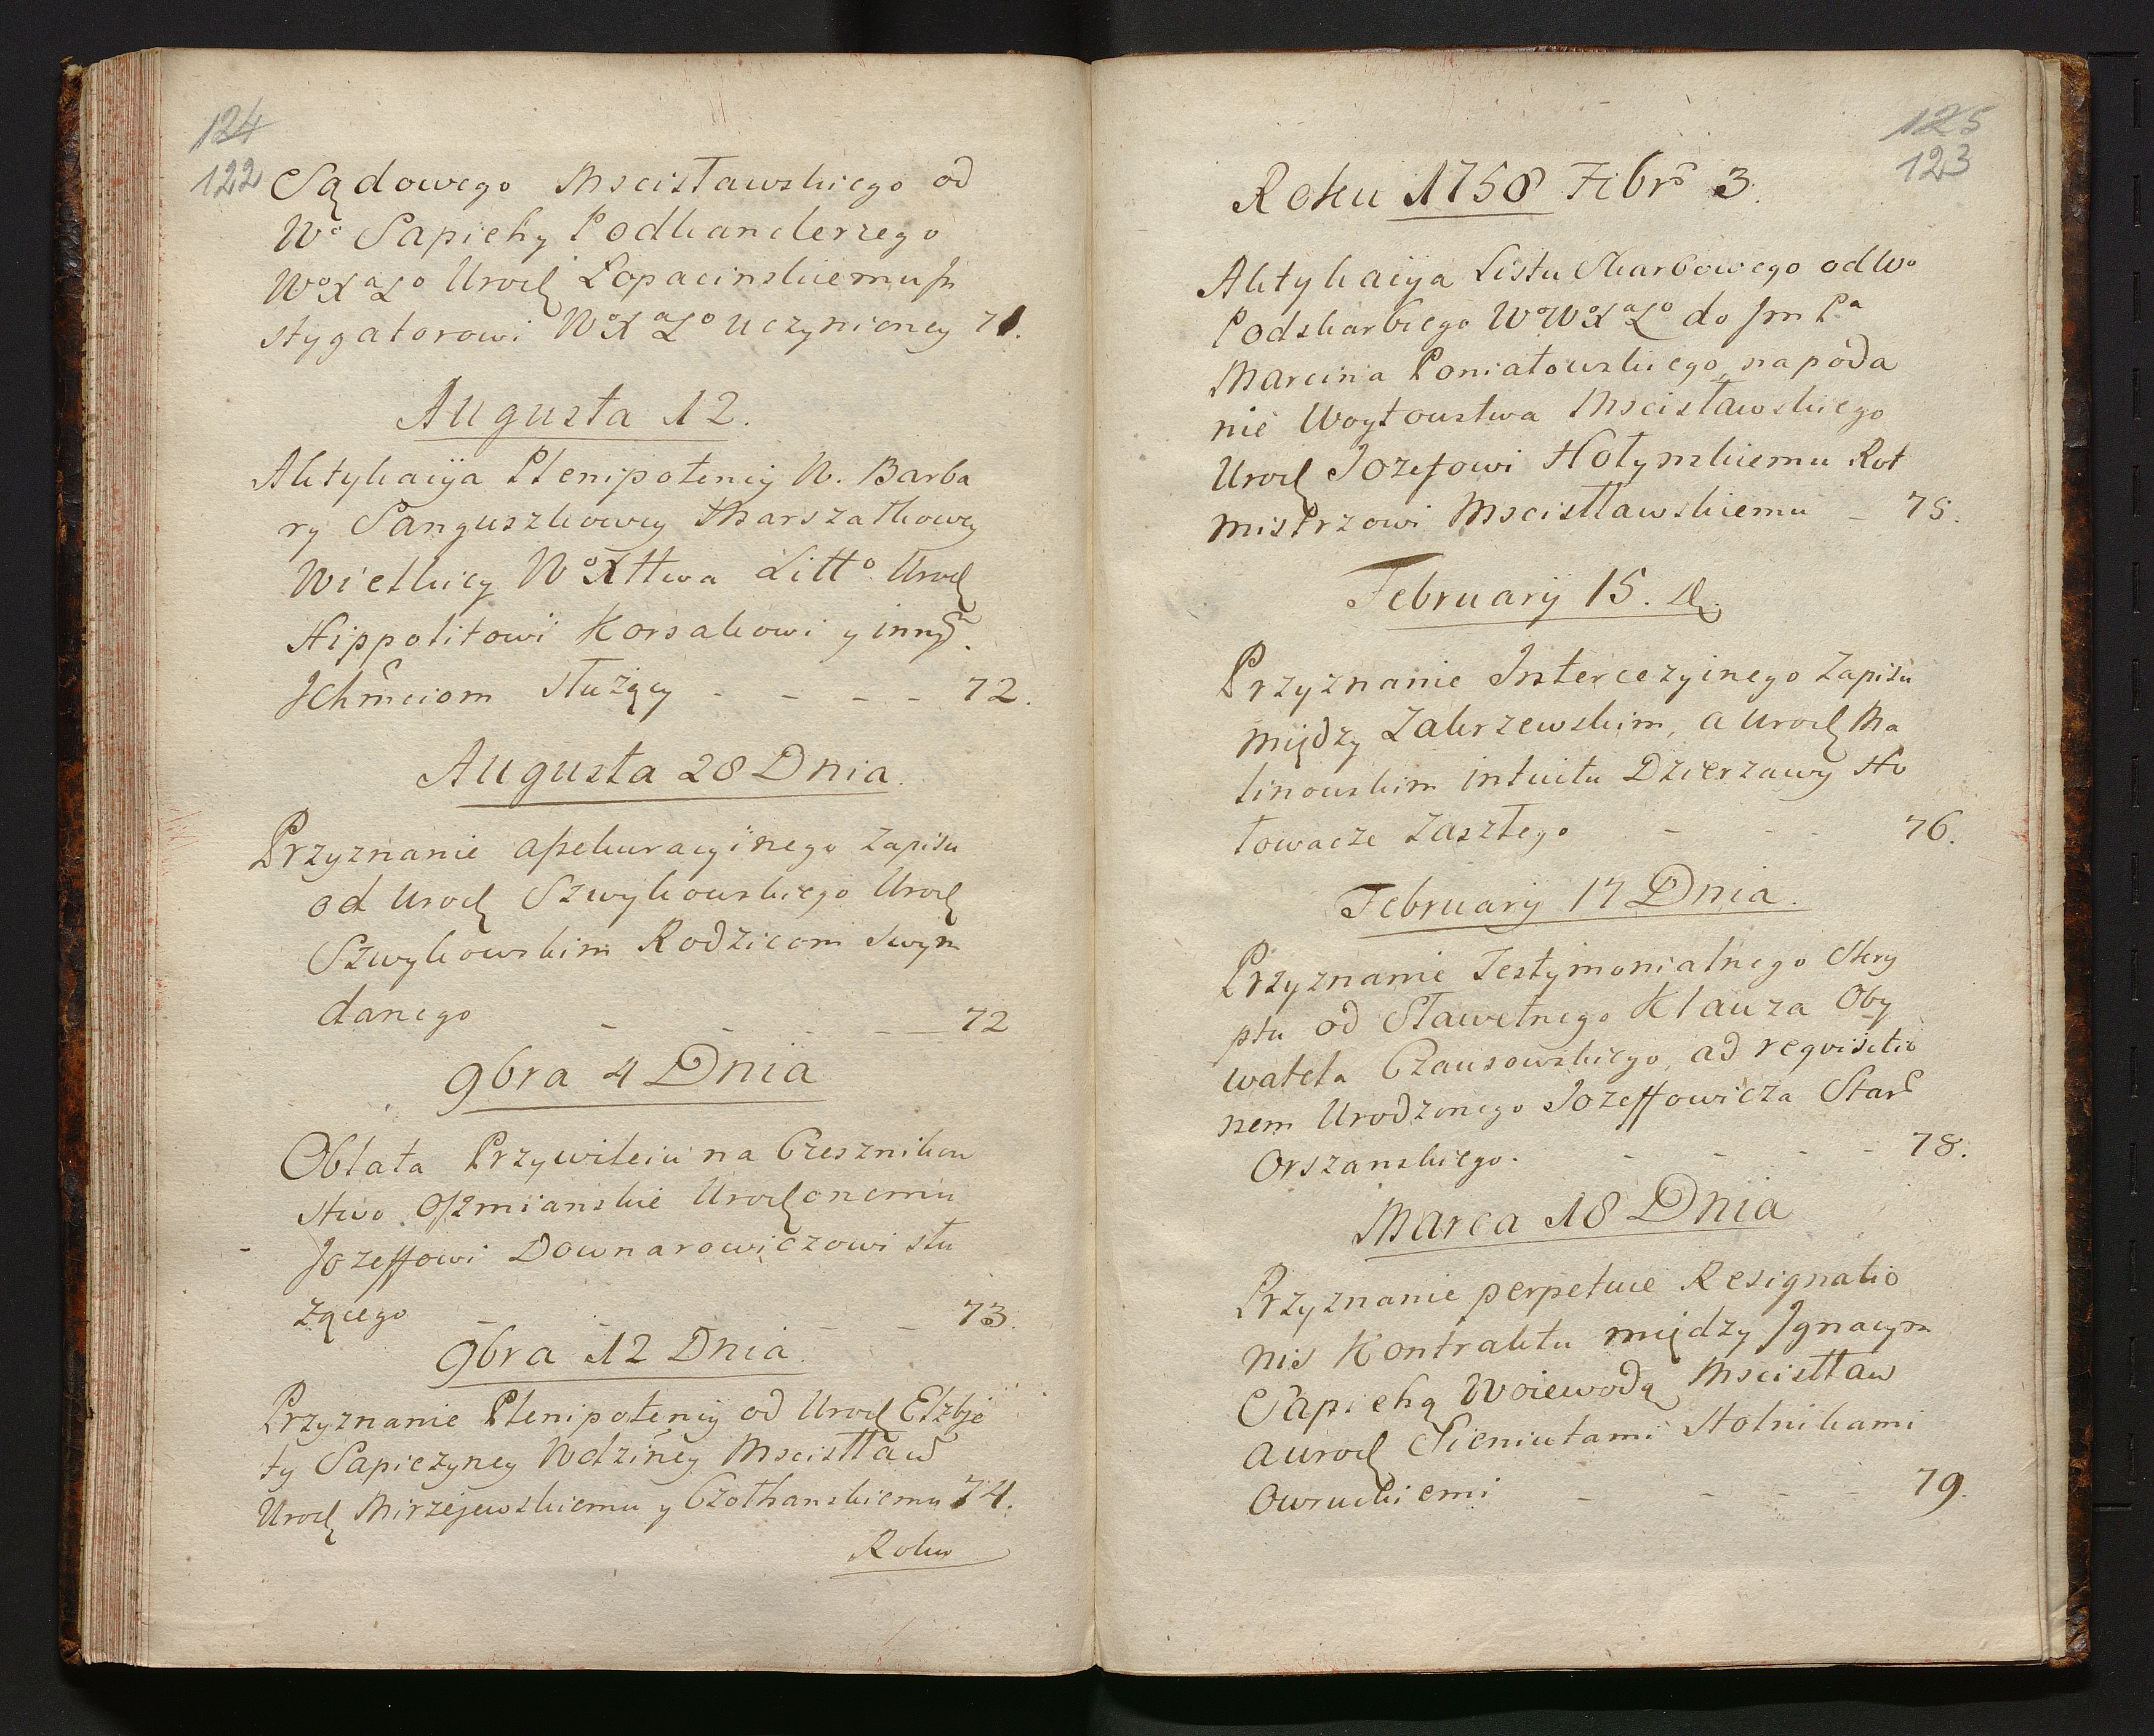 124
122
Sądowego Mscisławskiego od
Wo Sapiehy Podkanclerzego
WoXaLo Urodz Łopacinskiemu Jn
stygatorowi WoXaLo uczynioney 71.
Augusta 12.
Aktykacija Plenipotencij W. Barba
ry Sanguszkowey Marszałkowey
Wielkiey WoXttwa Litto Urodz
Hippolitowi Korsakowi y innÿ.
Jchmciom służący - - - - 72.
Augusta 28 Dnia.
Przyznanie assekuracyinego Zapisu
od Urodz Szwykowskiego Urodz
Szwykowskim Rodzicom swym
danego - - - - 72
9bra 4 Dnia
Oblata Przywileiu na Czesznikow
stwo Oszmianskie Urodzonemu
Jozeffowi Downarowiczowi słu
żącego - - - - 73.
9bra 12 Dnia.
Przyznanie Plenipotencij od Urodz Elzbje
ty Sapiezyney Wdziney Mscisław
Urodz Mirzejewskiemu y Czołhanskiemu 74.
Roku
125
123
Roku 1758 Febrs 3.
Aktykacija Listu Skarbowego od Wo
Podskarbiego WoWoXaLo do Jm Pa
Marcina Poniatowskiego, na poda
nie Woytowstwa Mscisławskiego
Urodz Jozefowi Hołynskiemu Rot
mistrzowi Mscistławskiemu - 75.
February 15. D.
Przyznanie Intercezyinego Zapisu
między Zakrzewskim, a Urodz Ma
linowskim intuitu Dzierzawy Ho
łowacze Zaszłego - - - 76.
February 17 Dnia.
Przyznanie Testymonialnego Skry
ptu od Sławetnego Klauza Oby
watela Czausowskiego, ad requisitio
nem Urodzonego Jozeffowicza Star
Orszanskiego. - - - - 78.
Marca 18 Dnia
Przyznanie perpetuæ Resignatio
nis Kontraktu między Jgnacym
Sapiehą Woiewodą Mscistław
a urodz Sieniutami Stolnikami
Owruckiemi - - - - 79.